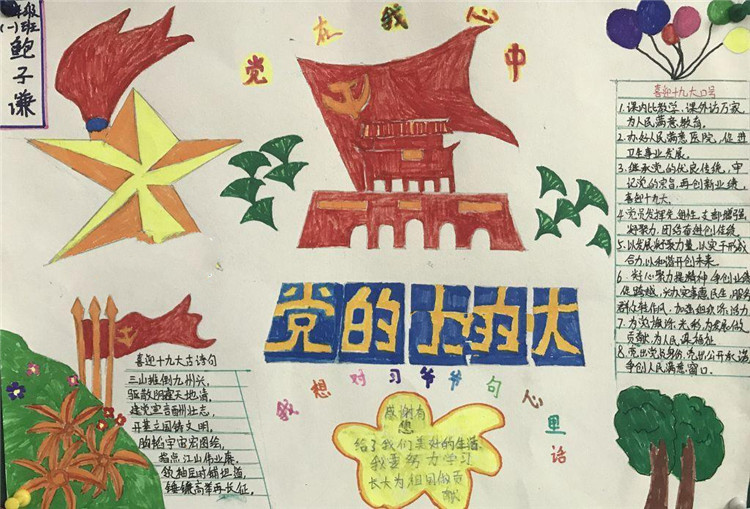 年级
(一)班
鲍子谦
党在我心中
喜迎十九大口号
1.课内比教学,课外访万家,
为人民满意教育。
2.办好人民满意医院,促进
卫生事业发展。
3.继承党的优良传统,牢
记党的宗旨,再创新业绩,
喜迎十九大。
4.党员发挥先进性,支部增强
凝聚力,团结奋进创佳绩
5.以发展凝聚力量,以实干形成
合力,以和谐开创未来。
6.
促跨越,
7.为党旗添光彩,为发展做
贡献,为人民谋福祉
8.亮出党员身份,亮出公开承诺
争创人民满意窗口。
党的士的大
我想对习爷爷句心里话
喜迎十九大古诗句
三山推倒九州兴,
驱散阴霾天地清,
建党宣言酬壮志,
开基立国铸文明,
胸韬宇宙宏图绘,
指点江山伟业赓,
领袖反时锦坦道,
锤镰高举再长征。
感谢有
想
给了我们美好的生活
我要努力学习
长大为祖国做贡
献